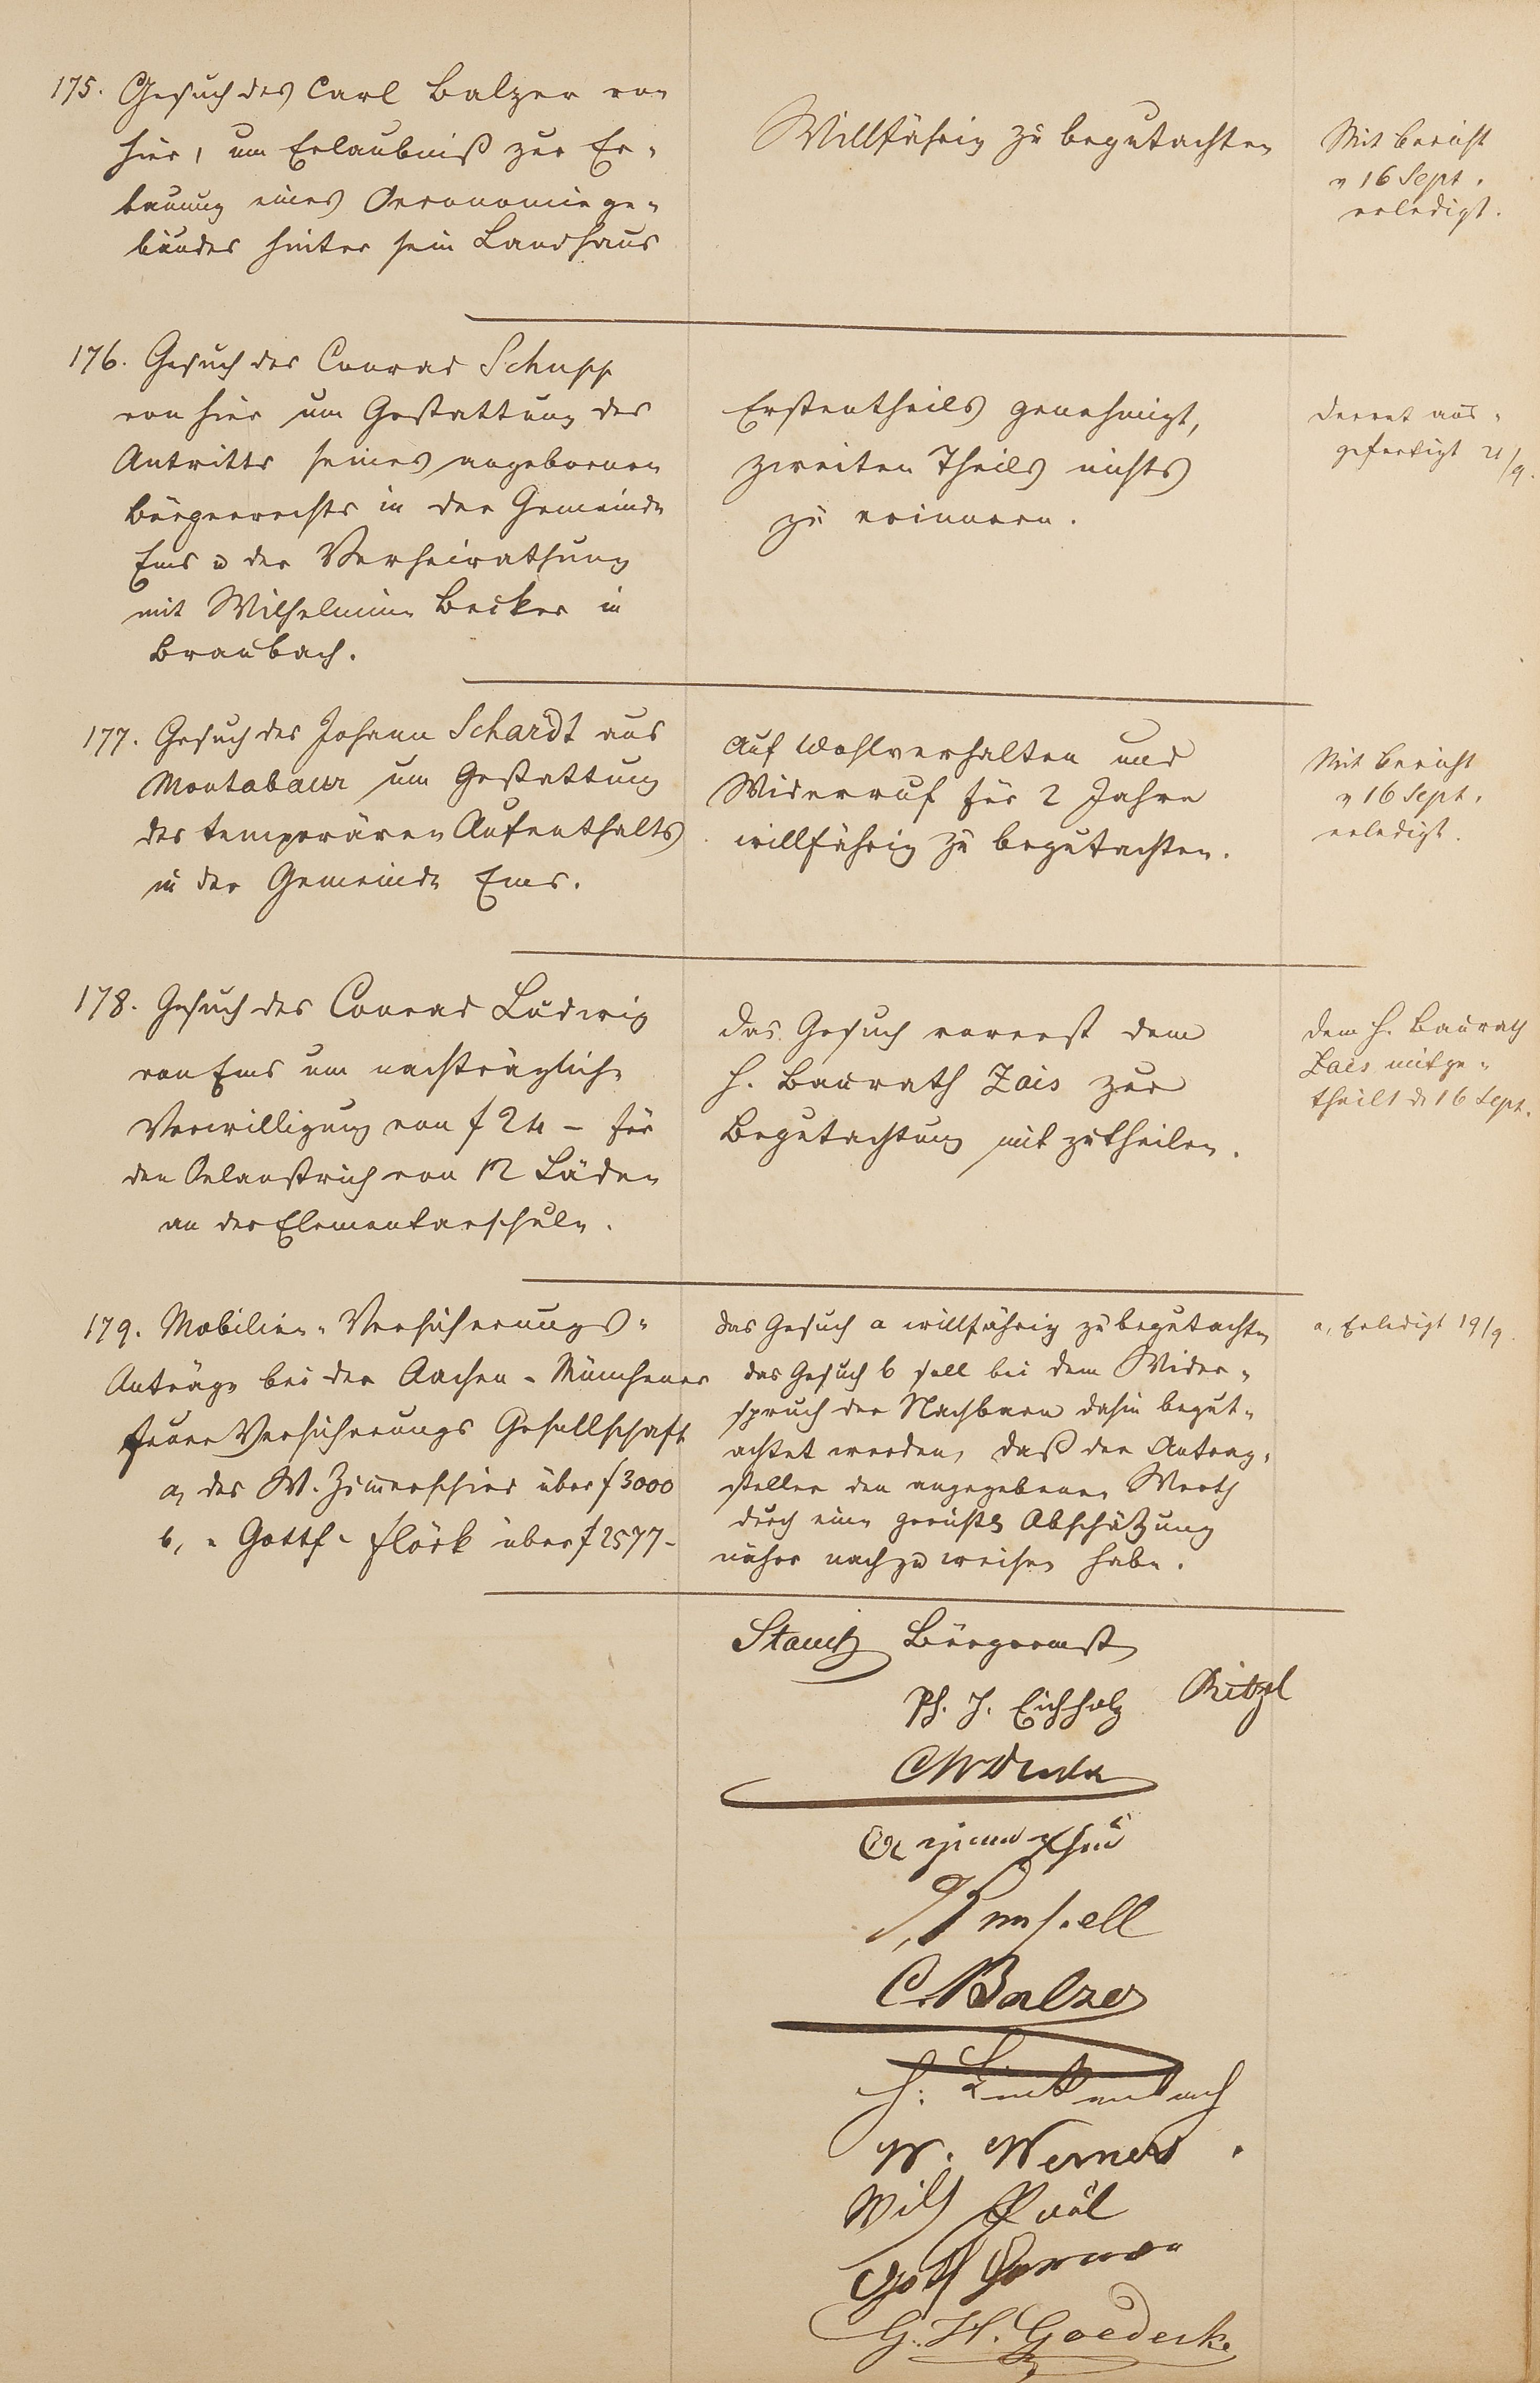 175. Gesuch des Carl Balzer von
hier, um Erlaubniß zur Er-
bauung eines Oeconomiege-
bäudes hinter sein Landhaus
Willfährig zu begutachten
Mit Bericht
v 16 Sept.
erledigt.
176. Gesuch des Conrad Schupp
von hier um Gestattung des
Antritts seines angebornen
Bürgerrechts in der Gemeinde
Ems u der Verheirathung
mit Wilhelmine Becker in
Braubach.
Erstentheils genehmigt,
zweiten Theils nichts
zu erinnern.
Decret aus-
gefertigt 21/9.
177. Gesuch des Johann Schardt aus
Montabaur um Gestattung
des temporären Aufenthalts
in der Gemeinde Ems.
Auf Wohlverhalten und
Widerruf für 2 Jahre
willfährig zu begutachten.
Mit Bericht
v 16 Sept.
erledigt.
178. Gesuch des Conrad Ludwig
von Ems um nachträgliche
Verwilligung von f 24 - für
den Oelanstrich von 12 Läden
an der Elementarschule.
Das Gesuch vorerst dem
H. Baurath Zais zur
Begutachtung mit zutheilen.
Dem H. Baurath
Zais mitge-
theilt d 16 Sept.
179. Mobilien-Versicherungs-
Anträge bei der Aachen-Münchener
Feuer Versicherungs Gesellschaft
a, des W. Zimmerschied über f 3000
b, " Gottf. Flöck über f 2577-
Das Gesuch a willfährig zu begutachten
das Gesuch b soll bei dem Wider-
spruch der Nachbarn dahin begut-
achtet werden, daß der Antrag-
steller den angegebenen Werth
durch eine gerichtl Abschätzung
näher nachzuweisen habe.
a, Erledigt 19/9.
Bürgermst
Ph. J. Eichholz
Ritzel
C. Balzer
H. Linkenbach
W. Werner.
Wilh
Goth
G. H. Goedecke